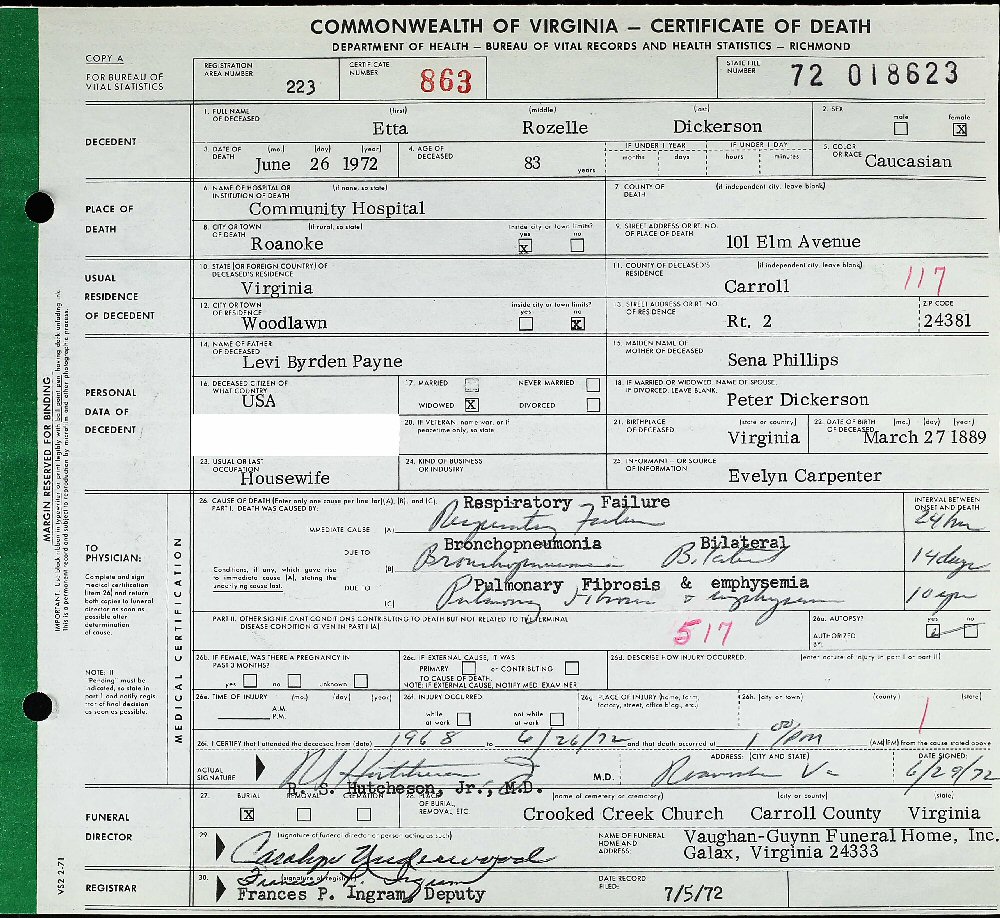 COMMONWEALTH OF VIRGINIA – CERTIFICATE OF DEATH
DEPARTMENT OF HEALTH – BUREAU OF VITAL RECORDS AND HEALTH STATISTICS – RICHMOND
COPY A
FOR BUREAU OF VITAL STATISTICS
REGISTRATION AREA NUMBER 223
CERTIFICATE NUMBER 863
STATE FILE NUMBER 72 018623
DECEDENT
1. FULL NAME OF DECEASED (first) (middle) (last)
Etta Rozelle Dickerson
2. SEX male female X
3. DATE OF DEATH (mo.) (day) (year)
June 26 1972
4. AGE OF DECEASED 83 years
IF UNDER 1 YEAR months days
IF UNDER 1 DAY hours minutes
5. COLOR OR RACE Caucasian
PLACE OF DEATH
6. NAME OF HOSPITAL OR INSTITUTION OF DEATH (if none, so state)
Community Hospital
7. COUNTY OF DEATH (if independent city, leave blank)
8. CITY OR TOWN OF DEATH (if rural, so state)
Roanoke
inside city or town limits? yes X no
9. STREET ADDRESS OR RT. NO. OF PLACE OF DEATH
101 Elm Avenue
USUAL RESIDENCE OF DECEDENT
10. STATE (OR FOREIGN COUNTRY) OF DECEASED'S RESIDENCE
Virginia
11. COUNTY OF DECEASED'S RESIDENCE (if independent city, leave blank)
Carroll 117
12. CITY OR TOWN OF RESIDENCE
Woodlawn
inside city or town limits? yes no X
13. STREET ADDRESS OR RT. NO. OF RESIDENCE
Rt. 2
ZIP CODE 24381
PERSONAL DATA OF DECEDENT
14. NAME OF FATHER OF DECEASED
Levi Byrden Payne
15. MAIDEN NAME OF MOTHER OF DECEASED
Sena Phillips
16. DECEASED CITIZEN OF WHAT COUNTRY
USA
17. MARRIED NEVER MARRIED
WIDOWED X DIVORCED
18. IF MARRIED OR WIDOWED, NAME OF SPOUSE. IF DIVORCED, LEAVE BLANK.
Peter Dickerson
20. IF VETERAN, name war, or if peacetime only, so state
21. BIRTHPLACE OF DECEASED (state or country)
Virginia
22. DATE OF BIRTH OF DECEASED (mo.) (day) (year)
March 27 1889
23. USUAL OR LAST OCCUPATION
Housewife
24. KIND OF BUSINESS OR INDUSTRY
25. INFORMANT – OR SOURCE OF INFORMATION
Evelyn Carpenter
MARGIN RESERVED FOR BINDING
VS2 2-71
TO PHYSICIAN:
Complete and sign medical certification (item 26) and return both copies to funeral director as soon as possible after determination of cause.
NOTE: If "Pending" must be indicated, so state in part I and notify registrar of final decision as soon as possible.
MEDICAL CERTIFICATION
26. CAUSE OF DEATH (Enter only one cause per line for (A), (B), and (C).
PART I. DEATH WAS CAUSED BY:
INTERVAL BETWEEN ONSET AND DEATH
Respiratory Failure
IMMEDIATE CAUSE (A) Respiratory Failure 24 hrs
Bronchopneumonia Bilateral
DUE TO (B) Bronchopneumonia Bilateral 14 days
Conditions, if any, which gave rise to immediate cause (A), stating the underlying cause last.
Pulmonary Fibrosis & emphysema
DUE TO (C) Pulmonary Fibrosis & emphysema 10 yrs
PART II. OTHER SIGNIFICANT CONDITIONS CONTRIBUTING TO DEATH BUT NOT RELATED TO THE TERMINAL DISEASE CONDITION GIVEN IN PART I(A)
517
26a. AUTOPSY? yes no
AUTHORIZED BY:
26b. IF FEMALE, WAS THERE A PREGNANCY IN PAST 3 MONTHS?
yes no unknown
26c. IF EXTERNAL CAUSE, IT WAS
PRIMARY or CONTRIBUTING
TO CAUSE OF DEATH.
NOTE: IF EXTERNAL CAUSE, NOTIFY MED. EXAMINER
26d. DESCRIBE HOW INJURY OCCURRED. (enter nature of injury in part I or part II)
26e. TIME OF INJURY (mo.) (day) (year)
A.M.
P.M.
26f. INJURY OCCURRED
while at work not while at work
26g. PLACE OF INJURY (home, farm, factory, street, office bldg., etc.)
26h. (city or town) (county) (state)
26i. I CERTIFY that I attended the deceased from (date) 1968 to 6/26/72 and that death occurred at 1 PM (AM)(PM) from the cause stated above
ACTUAL SIGNATURE
M.D.
ADDRESS: (CITY AND STATE)
Roanoke Va
DATE SIGNED:
6/29/72
R. S. Hutcheson, Jr., M.D.
FUNERAL DIRECTOR
27. BURIAL X REMOVAL CREMATION
28. PLACE OF BURIAL, REMOVAL, ETC.
(name of cemetery or crematory) (city or county) (state)
Crooked Creek Church Carroll County Virginia
29. (signature of funeral director or person acting as such)
Carolyn Underwood
NAME OF FUNERAL HOME AND ADDRESS:
Vaughan-Guynn Funeral Home, Inc.
Galax, Virginia 24333
REGISTRAR
30. (signature of registrar)
Francis P. Ingram
Frances P. Ingram, Deputy
DATE RECORD FILED: 7/5/72